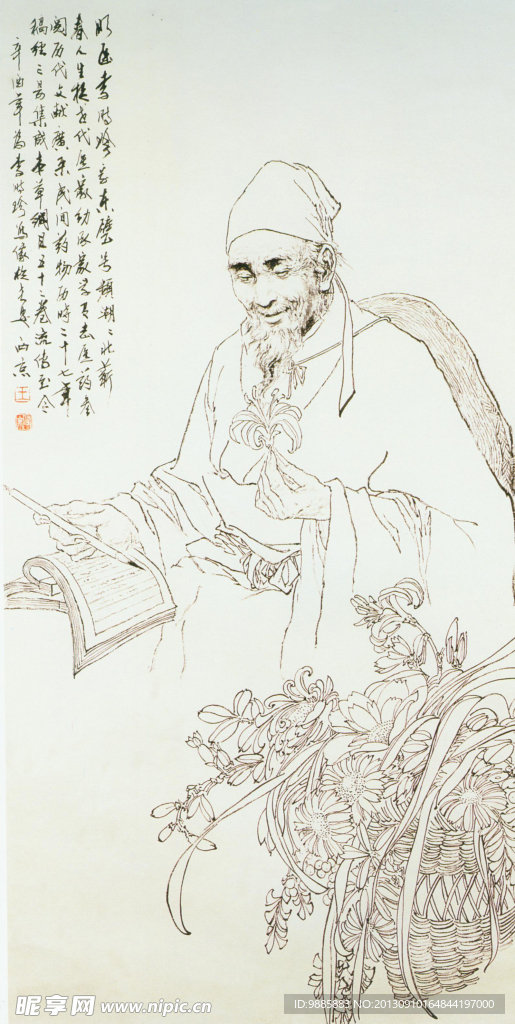 明医李时珍字东壁号频湖湖北蕲
春人生于古代医家幼承家学考古医药参
阅历代文献广采民间药物历时二十七年
稿经三易集成本草纲目五十二卷流传至今
辛酉年为李时珍写像于长安 西京
昵享网 www.nipic.cn
ID:9885883 NO:20130910164844197000